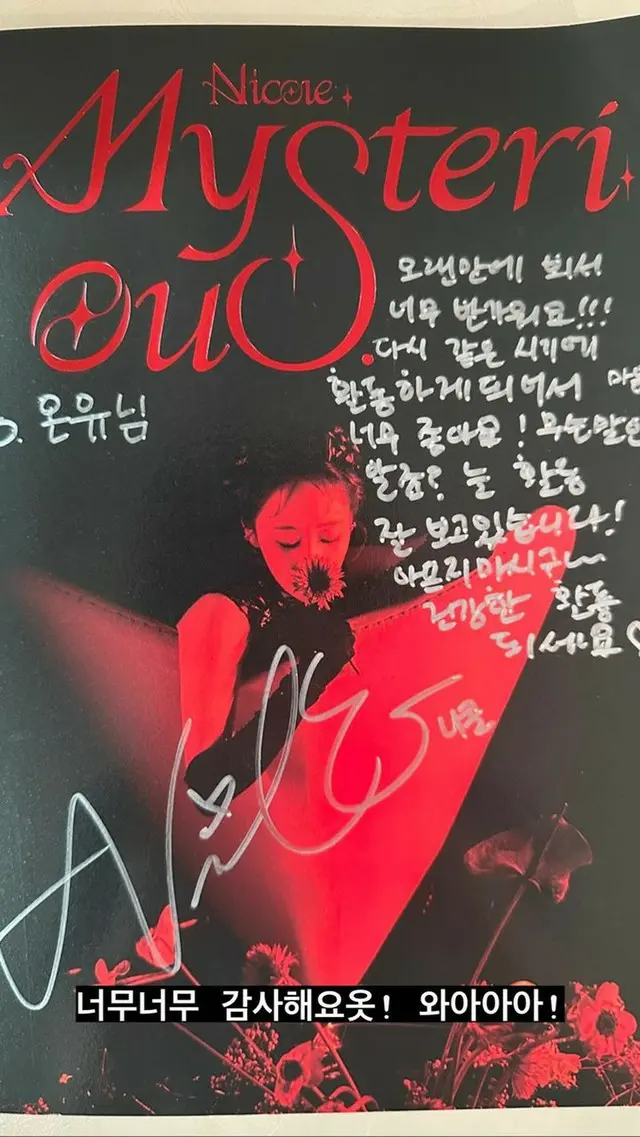 Nicole
Mysteri
ous.
오랜만에 봬서
너무 반가워요!!!
다시 같은 시기에
활동하게되어서
너무 좋아요!
o. 온유님
눈 활동
잘 보고있습니다!
아픈지마시구~
건강한 활동
되세요♡
Nicole
니콜
너무너무 감사해요옷! 와아아아!